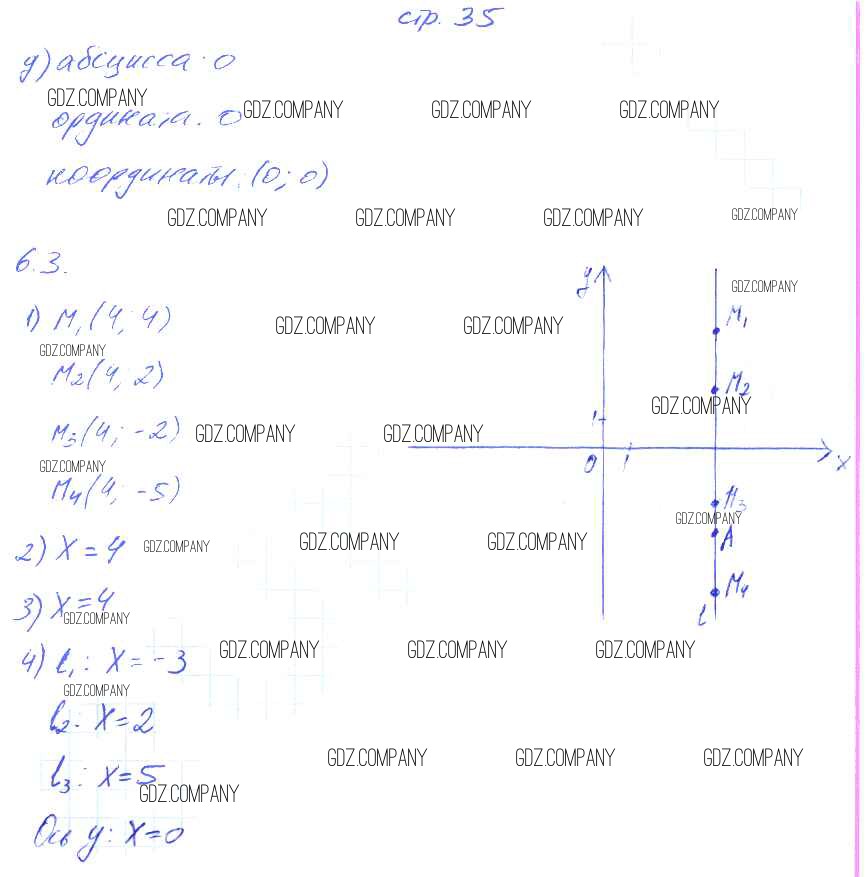 стр. 35
д) абсцисса: 0
GDZ.COMPANY
ордината: 0
GDZ.COMPANY GDZ.COMPANY GDZ.COMPANY
координаты: (0; 0)
GDZ.COMPANY GDZ.COMPANY GDZ.COMPANY GDZ.COMPANY
6.3.
1) M₁(4; 4)
GDZ.COMPANY GDZ.COMPANY
GDZ.COMPANY
M₂(4; 2)
M₃(4; -2) GDZ.COMPANY GDZ.COMPANY
GDZ.COMPANY
M₄(4; -5)
2) X = 4 GDZ.COMPANY GDZ.COMPANY GDZ.COMPANY
3) X = 4
GDZ.COMPANY
4) l₁: X = -3 GDZ.COMPANY GDZ.COMPANY GDZ.COMPANY
GDZ.COMPANY
l₂: X = 2
GDZ.COMPANY GDZ.COMPANY GDZ.COMPANY
l₃: X = 5
GDZ.COMPANY
Ось y: X = 0
y
GDZ.COMPANY
M₁
M₂
GDZ.COMPANY
1
0 1 x
M₃
GDZ.COMPANY
A
M₄
l